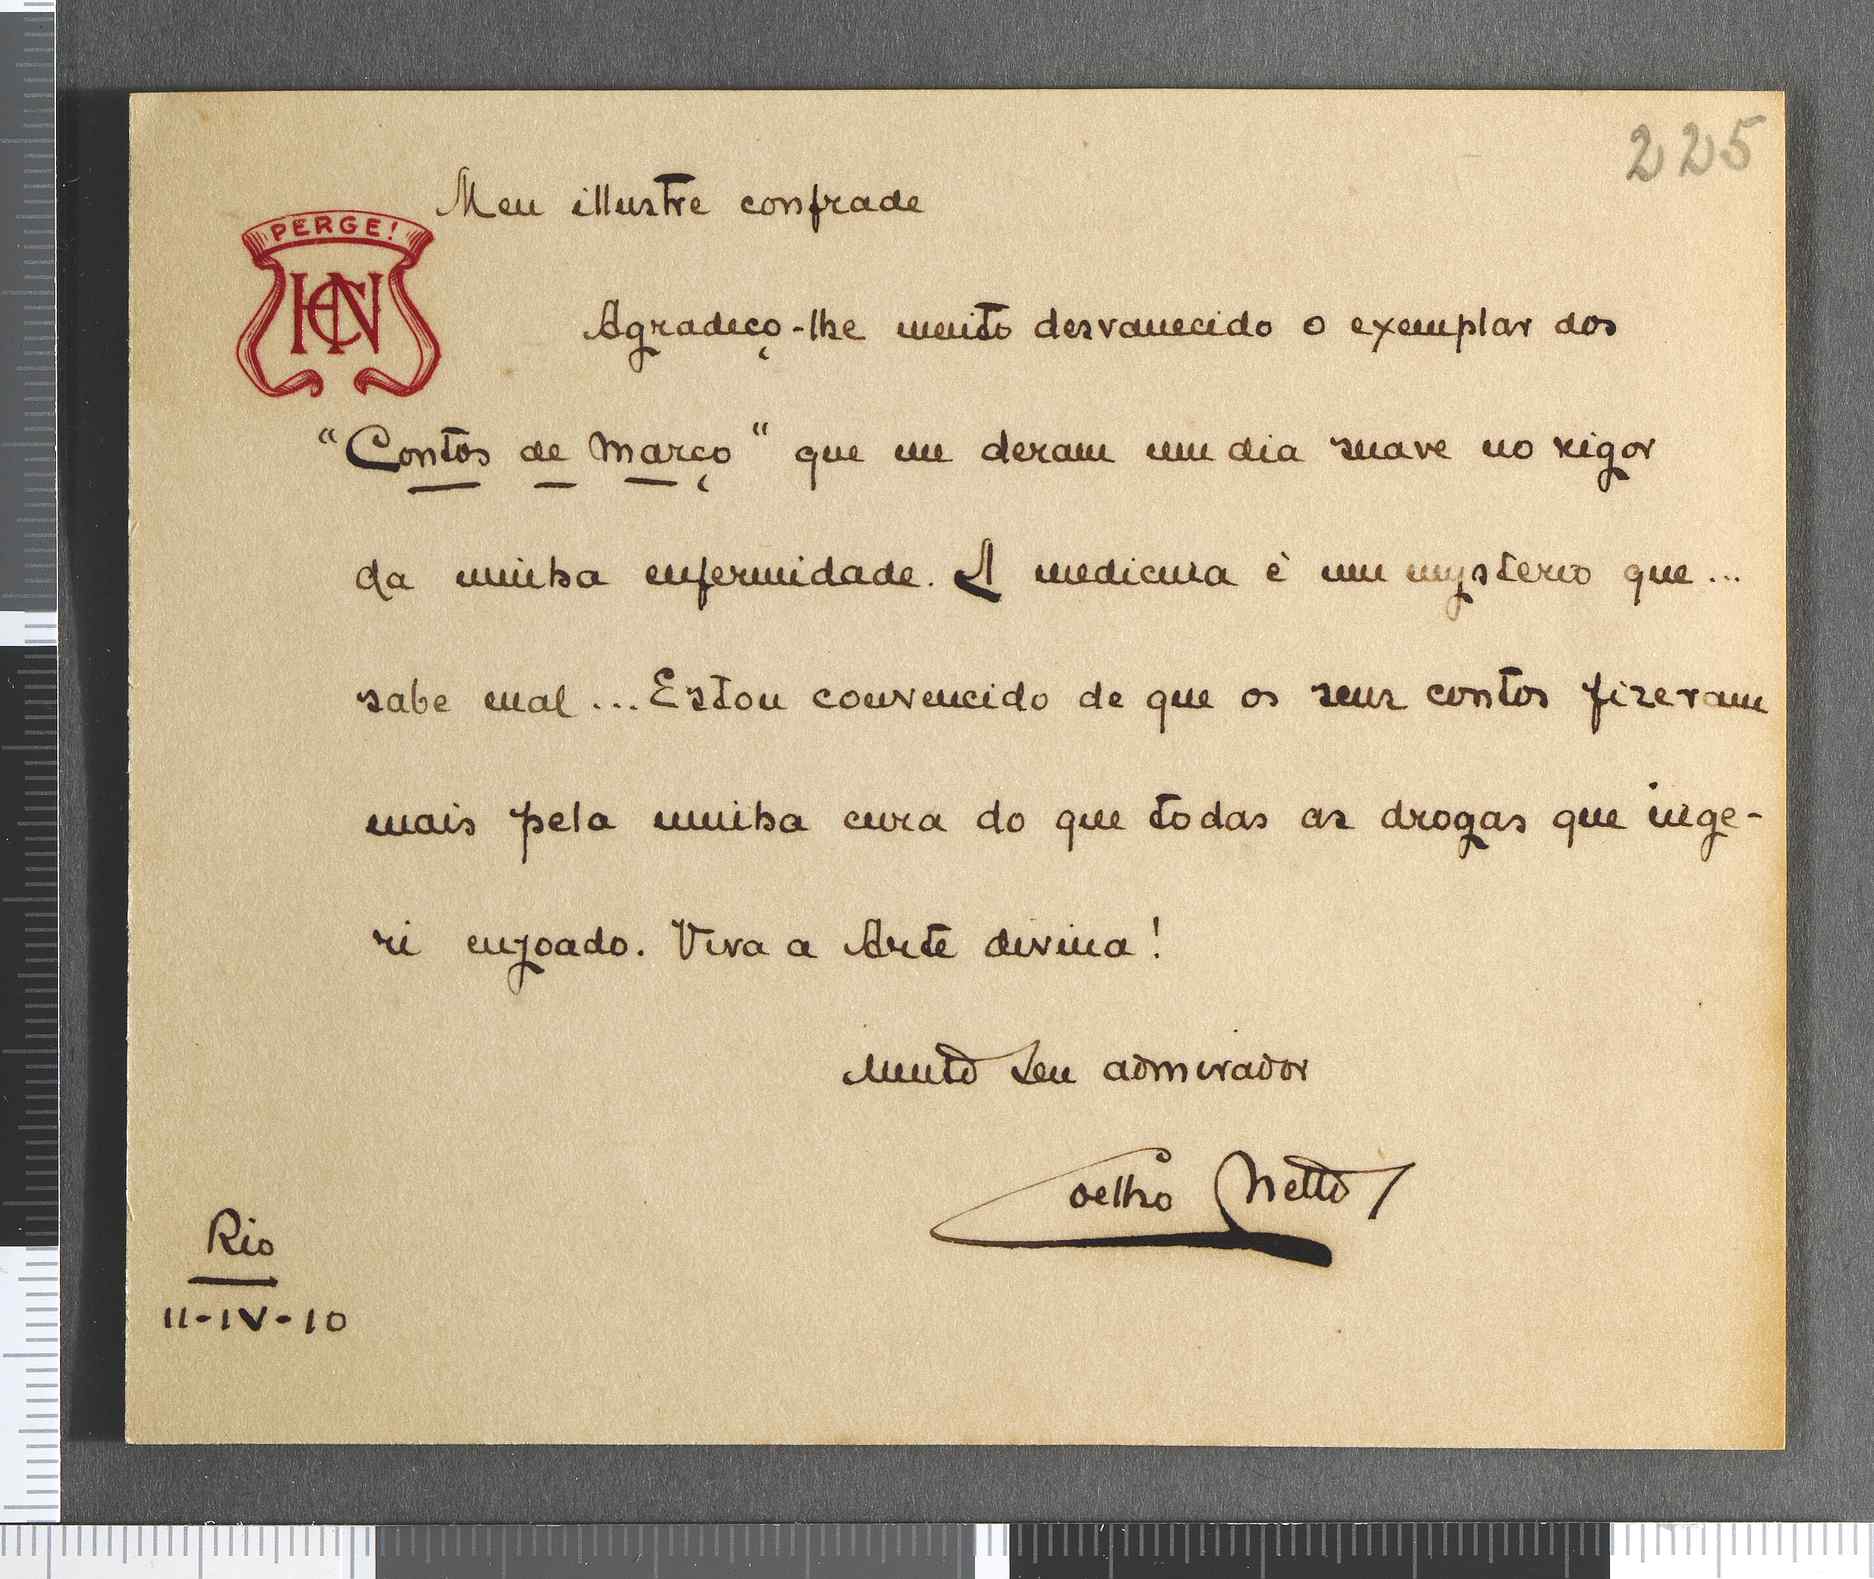 225
Meu illustre confrade
PERGE!
HCN
Agradeço-lhe muito desvanecido o exemplar dos
"Contos de Março" que me deram um dia suave no rigor
da minha enfermidade. A medicina é um mysterio que...
sabe mal... Estou convencido de que os seus contos fizeram
mais pela minha cura do que todas as drogas que inge-
ri enjoado. Viva a Arte divina!
Muito seu admirador
Coelho Netto
Rio
11-IV-10